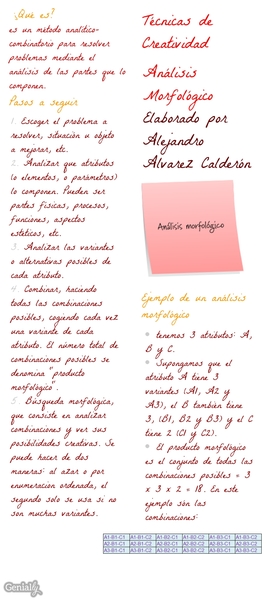 ¿Qué es?
es un método analítico-
combinatorio para resolver
problemas mediante el
análisis de las partes que lo
componen.
Pasos a seguir
1. Escoger el problema a
resolver, situación u objeto
a mejorar, etc.
2. Analizar que atributos
(o elementos, o parámetros)
lo componen. Pueden ser
partes físicas, procesos,
funciones, aspectos
estéticos, etc.
3. Analizar las variantes
o alternativas posibles de
cada atributo.
4. Combinar, haciendo
todas las combinaciones
posibles, cogiendo cada vez
una variante de cada
atributo. El número total de
combinaciones posibles se
denomina "producto
morfológico".
5. Búsqueda morfológica,
que consiste en analizar
combinaciones y ver sus
posibilidades creativas. Se
puede hacer de dos
maneras: al azar o por
enumeración ordenada, el
segundo solo se usa si no
son muchas variantes.
Técnicas de
Creatividad
Análisis
Morfológico
Elaborado por
Alejandro
Alvarez Calderón
Análisis morfológico
Ejemplo de un análisis
morfológico
tenemos 3 atributos: A,
B y C.
Supongamos que el
atributo A tiene 3
variantes (A1, A2 y
A3), el B también tiene
3, (B1, B2 y B3) y el C
tiene 2 (C1 y C2).
El producto morfológico
es el conjunto de todas las
combinaciones posibles = 3
x 3 x 2 = 18. En este
ejemplo son las
combinaciones:
A1-B1-C1 A1-B1-C2 A1-B2-C1 A1-B2-C2 A1-B3-C1 A1-B3-C2
A2-B1-C1 A2-B1-C2 A2-B2-C1 A2-B2-C2 A2-B3-C1 A2-B3-C2
A3-B1-C1 A3-B1-C2 A3-B2-C1 A3-B2-C2 A3-B3-C1 A3-B3-C2
Genially